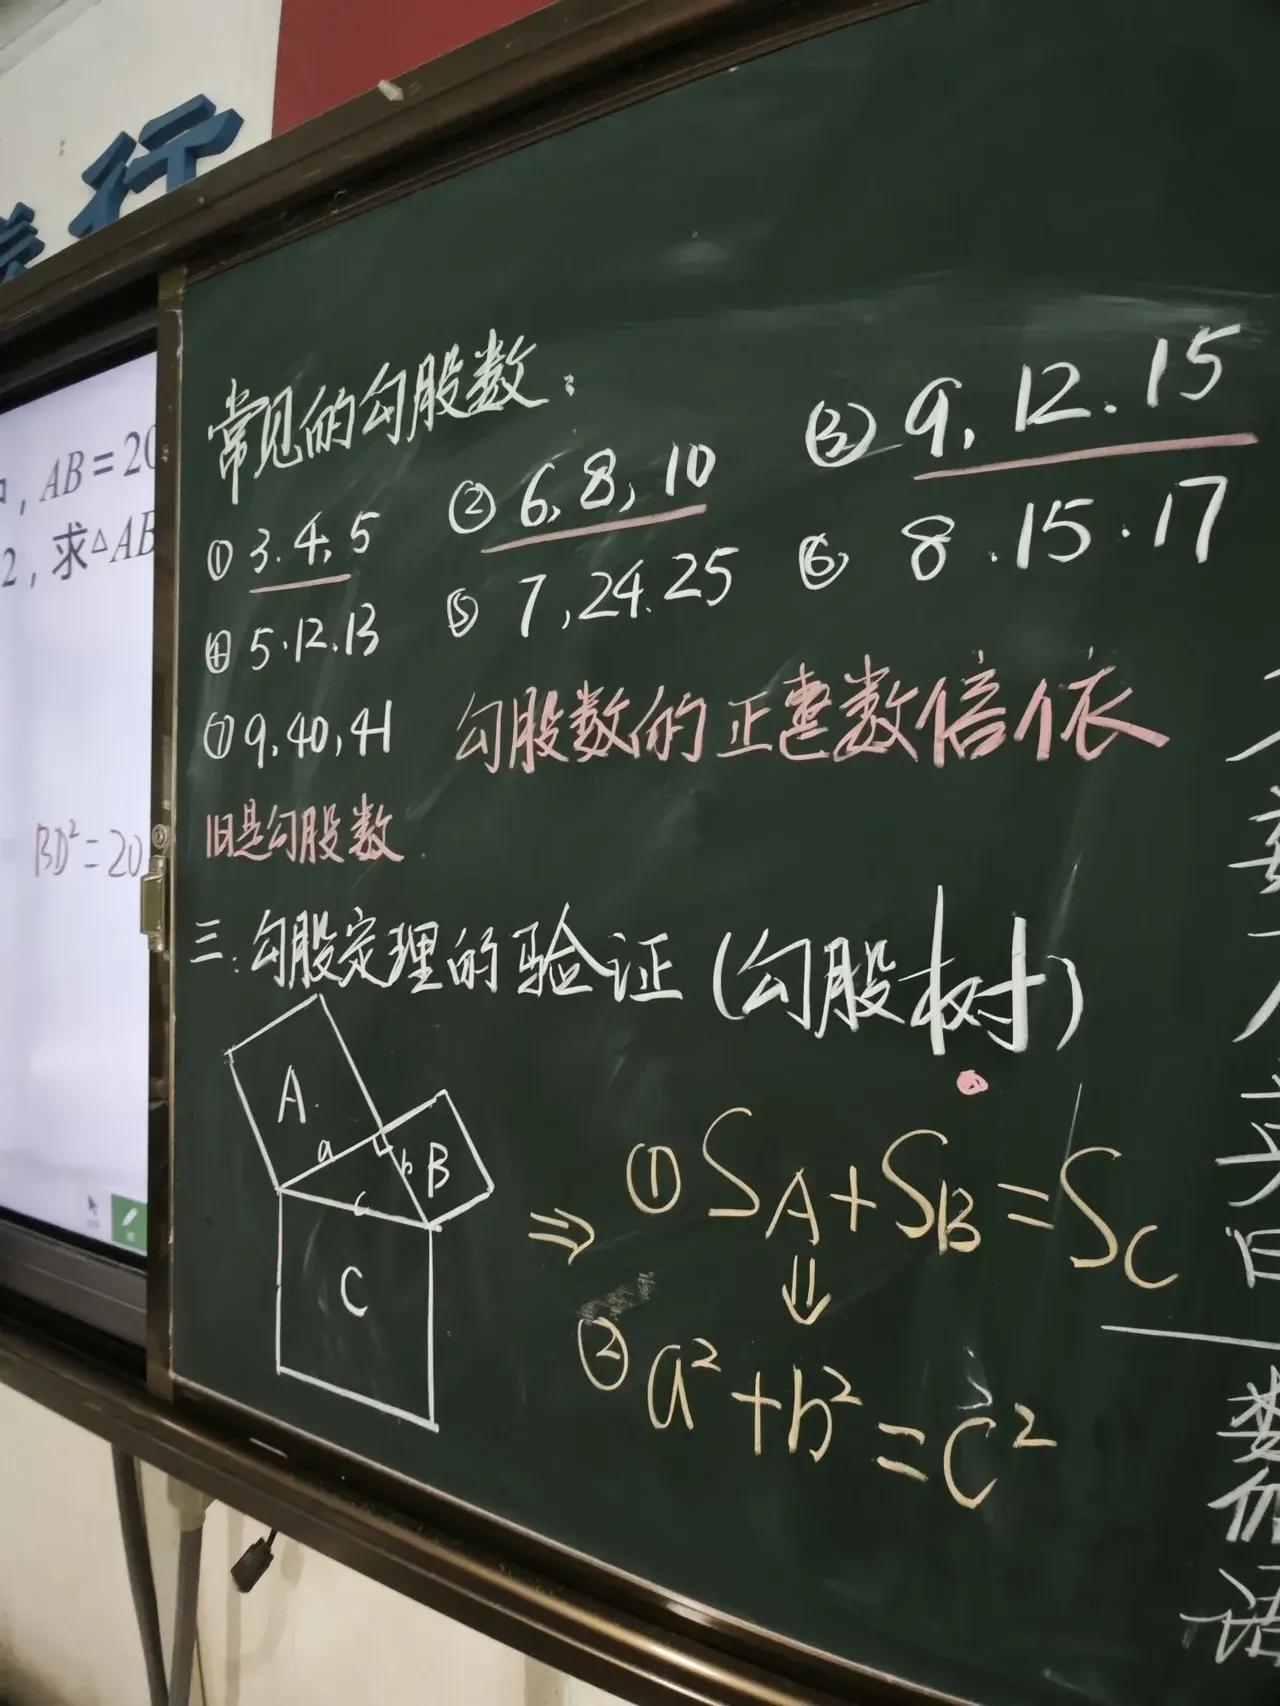 行
, AB=20
2, 求△AB
BD²=20
常见的勾股数:
① 3.4,5 ② 6,8,10 ③ 9,12.15
④ 5.12.13 ⑤ 7,24.25 ⑥ 8.15.17
⑦ 9,40,41 勾股数的正整数倍依
旧是勾股数.
三.勾股定理的验证(勾股树)
A
a b B
c
C
⇒ ① SA+SB=SC
⇓
② a²+b²=c²